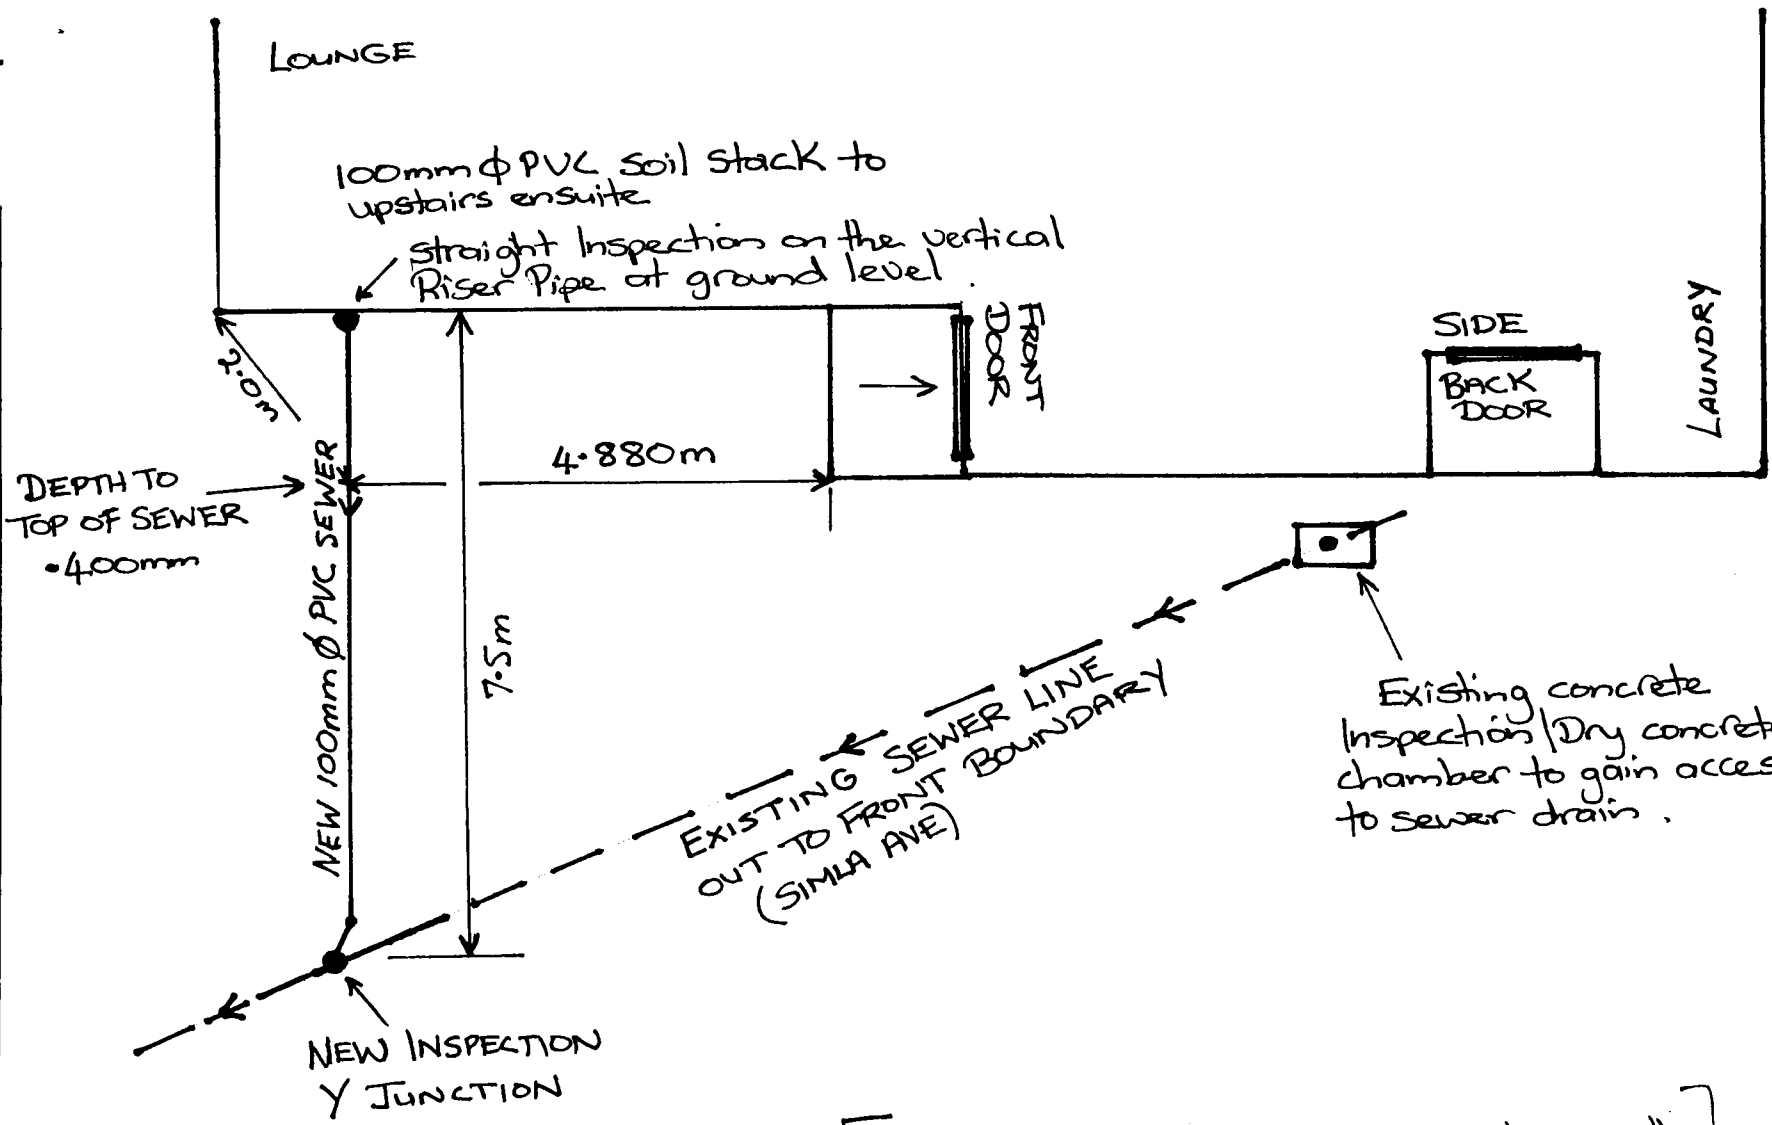 LOUNGE
100mm φ PVC soil stack to
upstairs ensuite
Straight Inspection on the vertical
Riser Pipe at ground level.
FRONT
DOOR
SIDE
BACK
DOOR
LAUNDRY
2.0m
4.880m
DEPTH TO
TOP OF SEWER
•400mm
NEW 100mm Ø PVC SEWER
7.5m
EXISTING SEWER LINE
OUT TO FRONT BOUNDARY
(SIMLA AVE)
Existing concrete
Inspection/Dry concrete
chamber to gain acces
to sewer drain.
NEW INSPECTION
Y JUNCTION